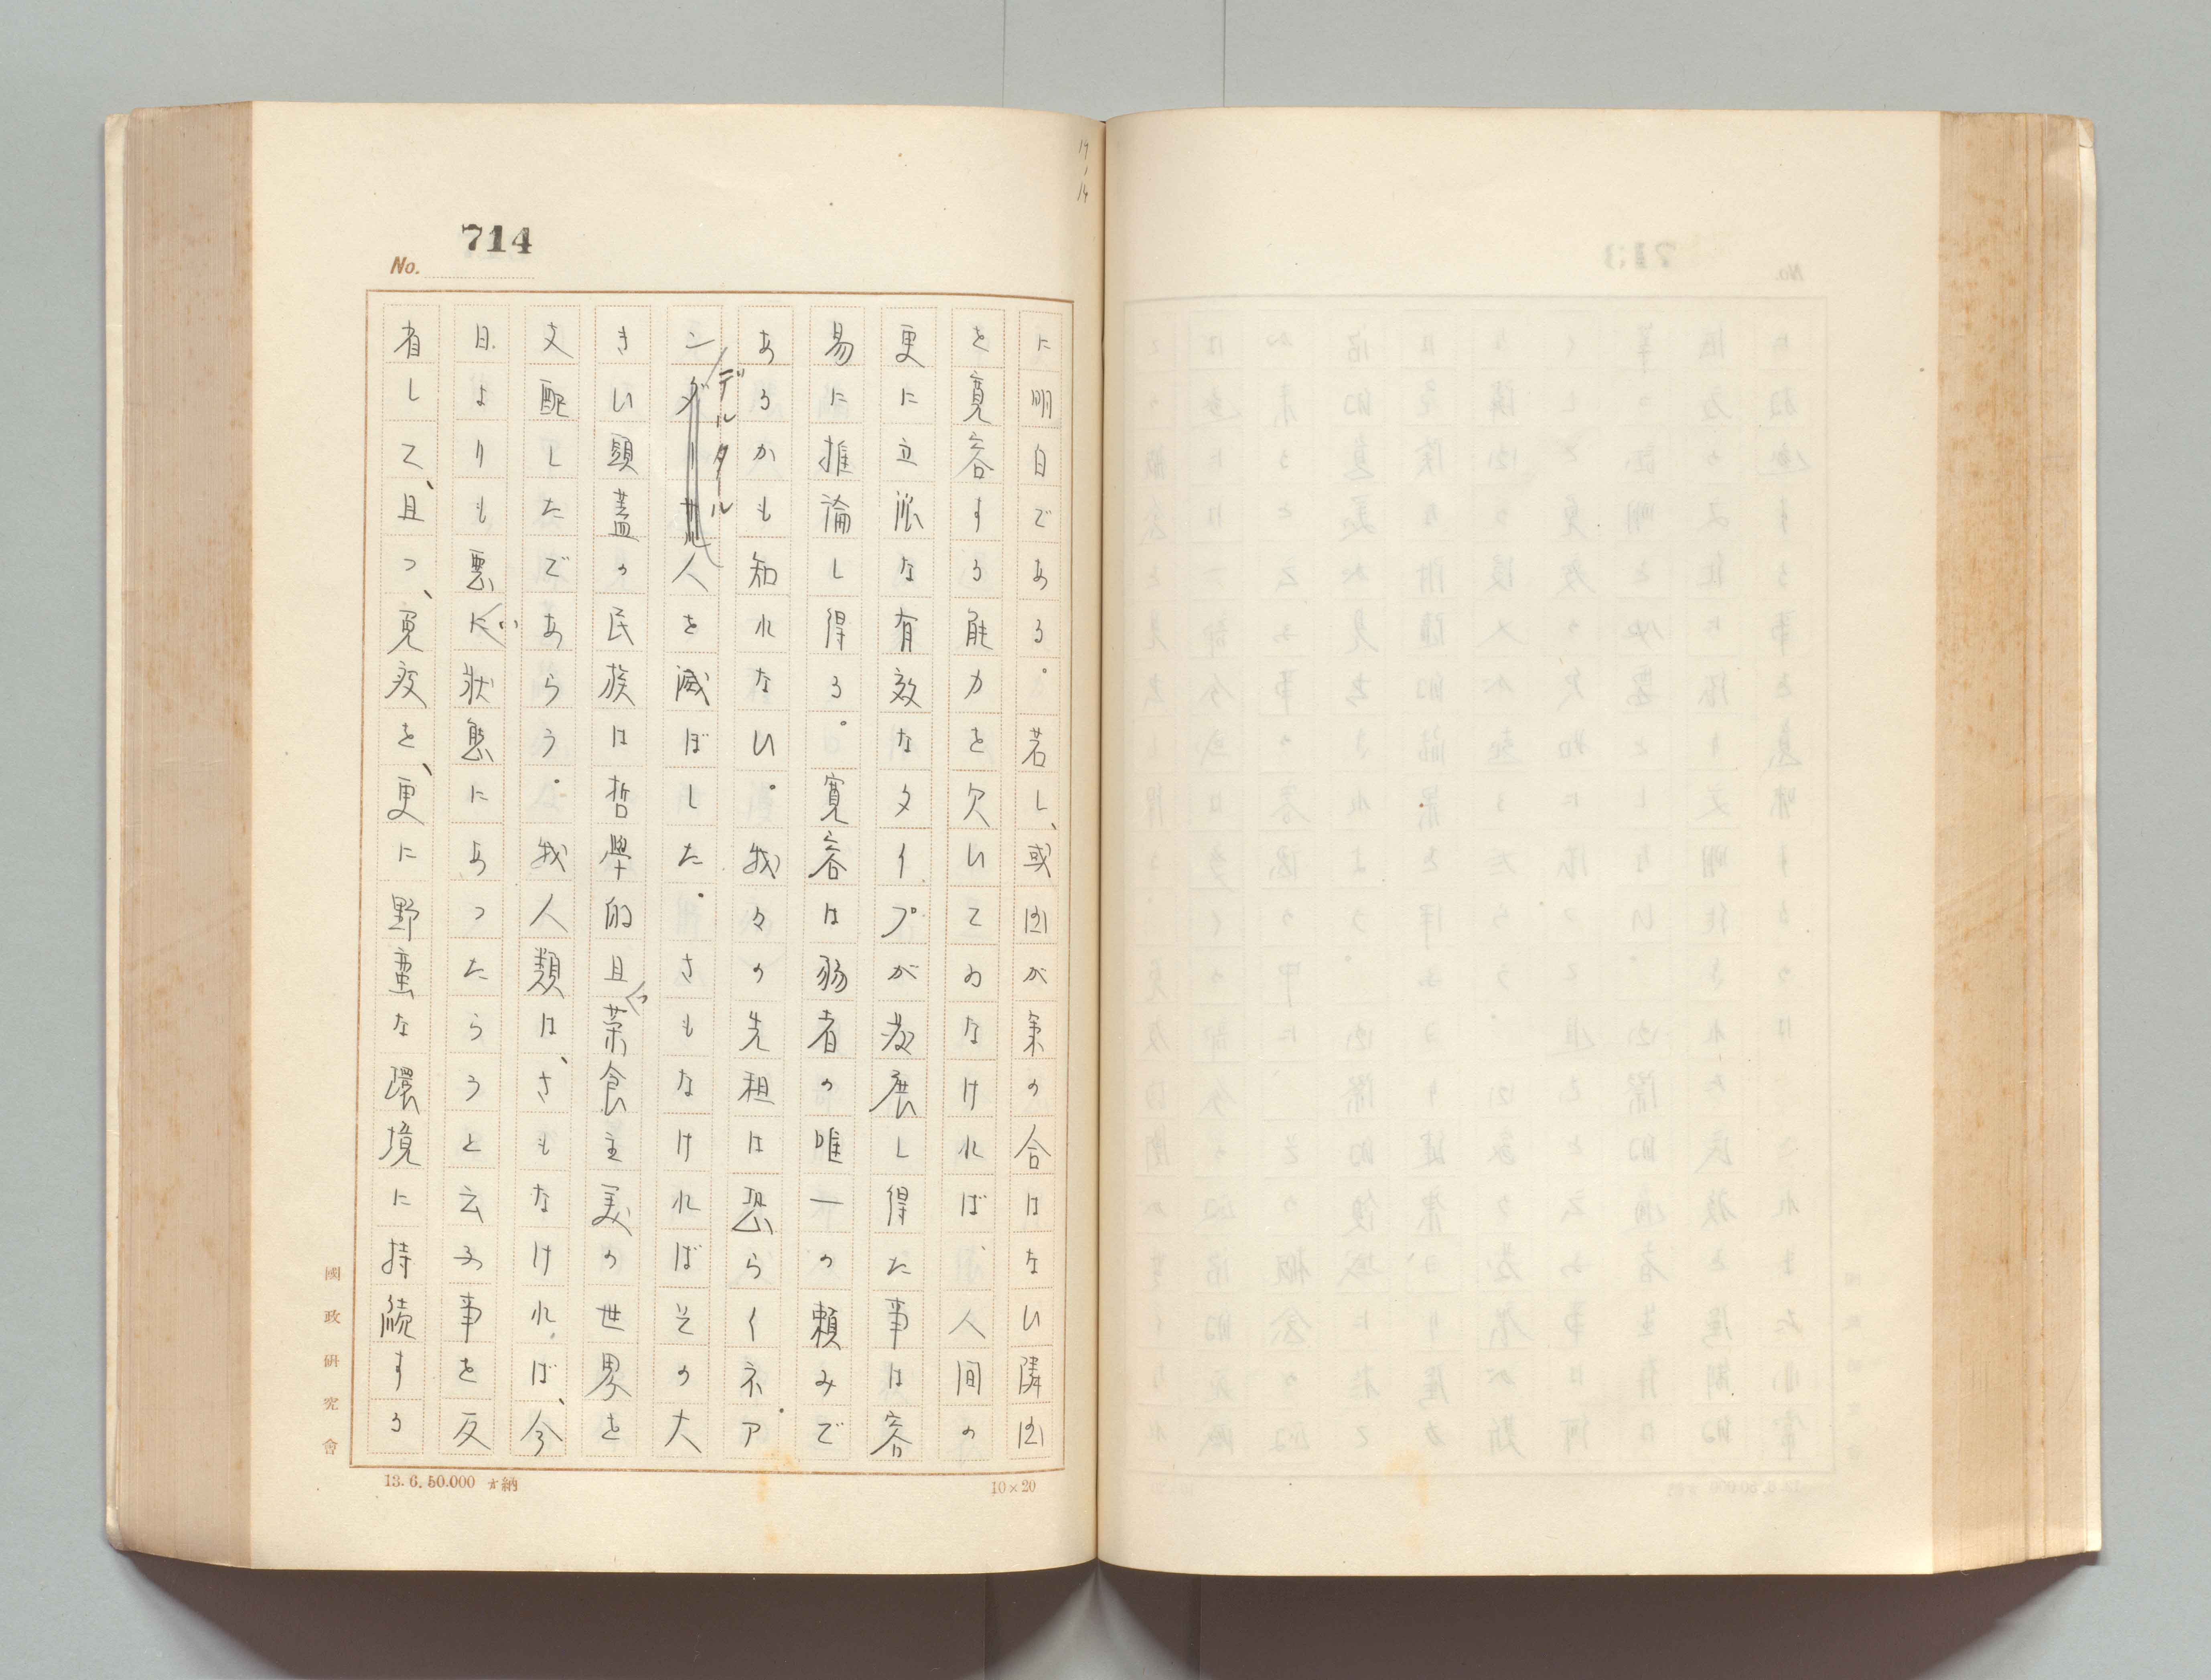 17,14
714
No.
に明白である。若し、或国が氣の合はない隣国
を寛容する能力を欠いてゐなければ、人間の
更に立派な有效なタイプが發展し得た事は容
易に推論し得る。寛容は弱者の唯一の頼みで
あるかも知れない。我々の先祖は恐らくネア
ンデルタール人を滅ぼした。さもなければその大
きい頭蓋の民族は哲學的且つ菜食主義の世界を
支配したであらう。我人類は、さもなければ、今
日よりも悪い状態にあつたらうと云ふ事を反
省して、且つ、免疫を、更に野蛮な環境に持続する
國政研究會
13.6.50.000 納
10×20